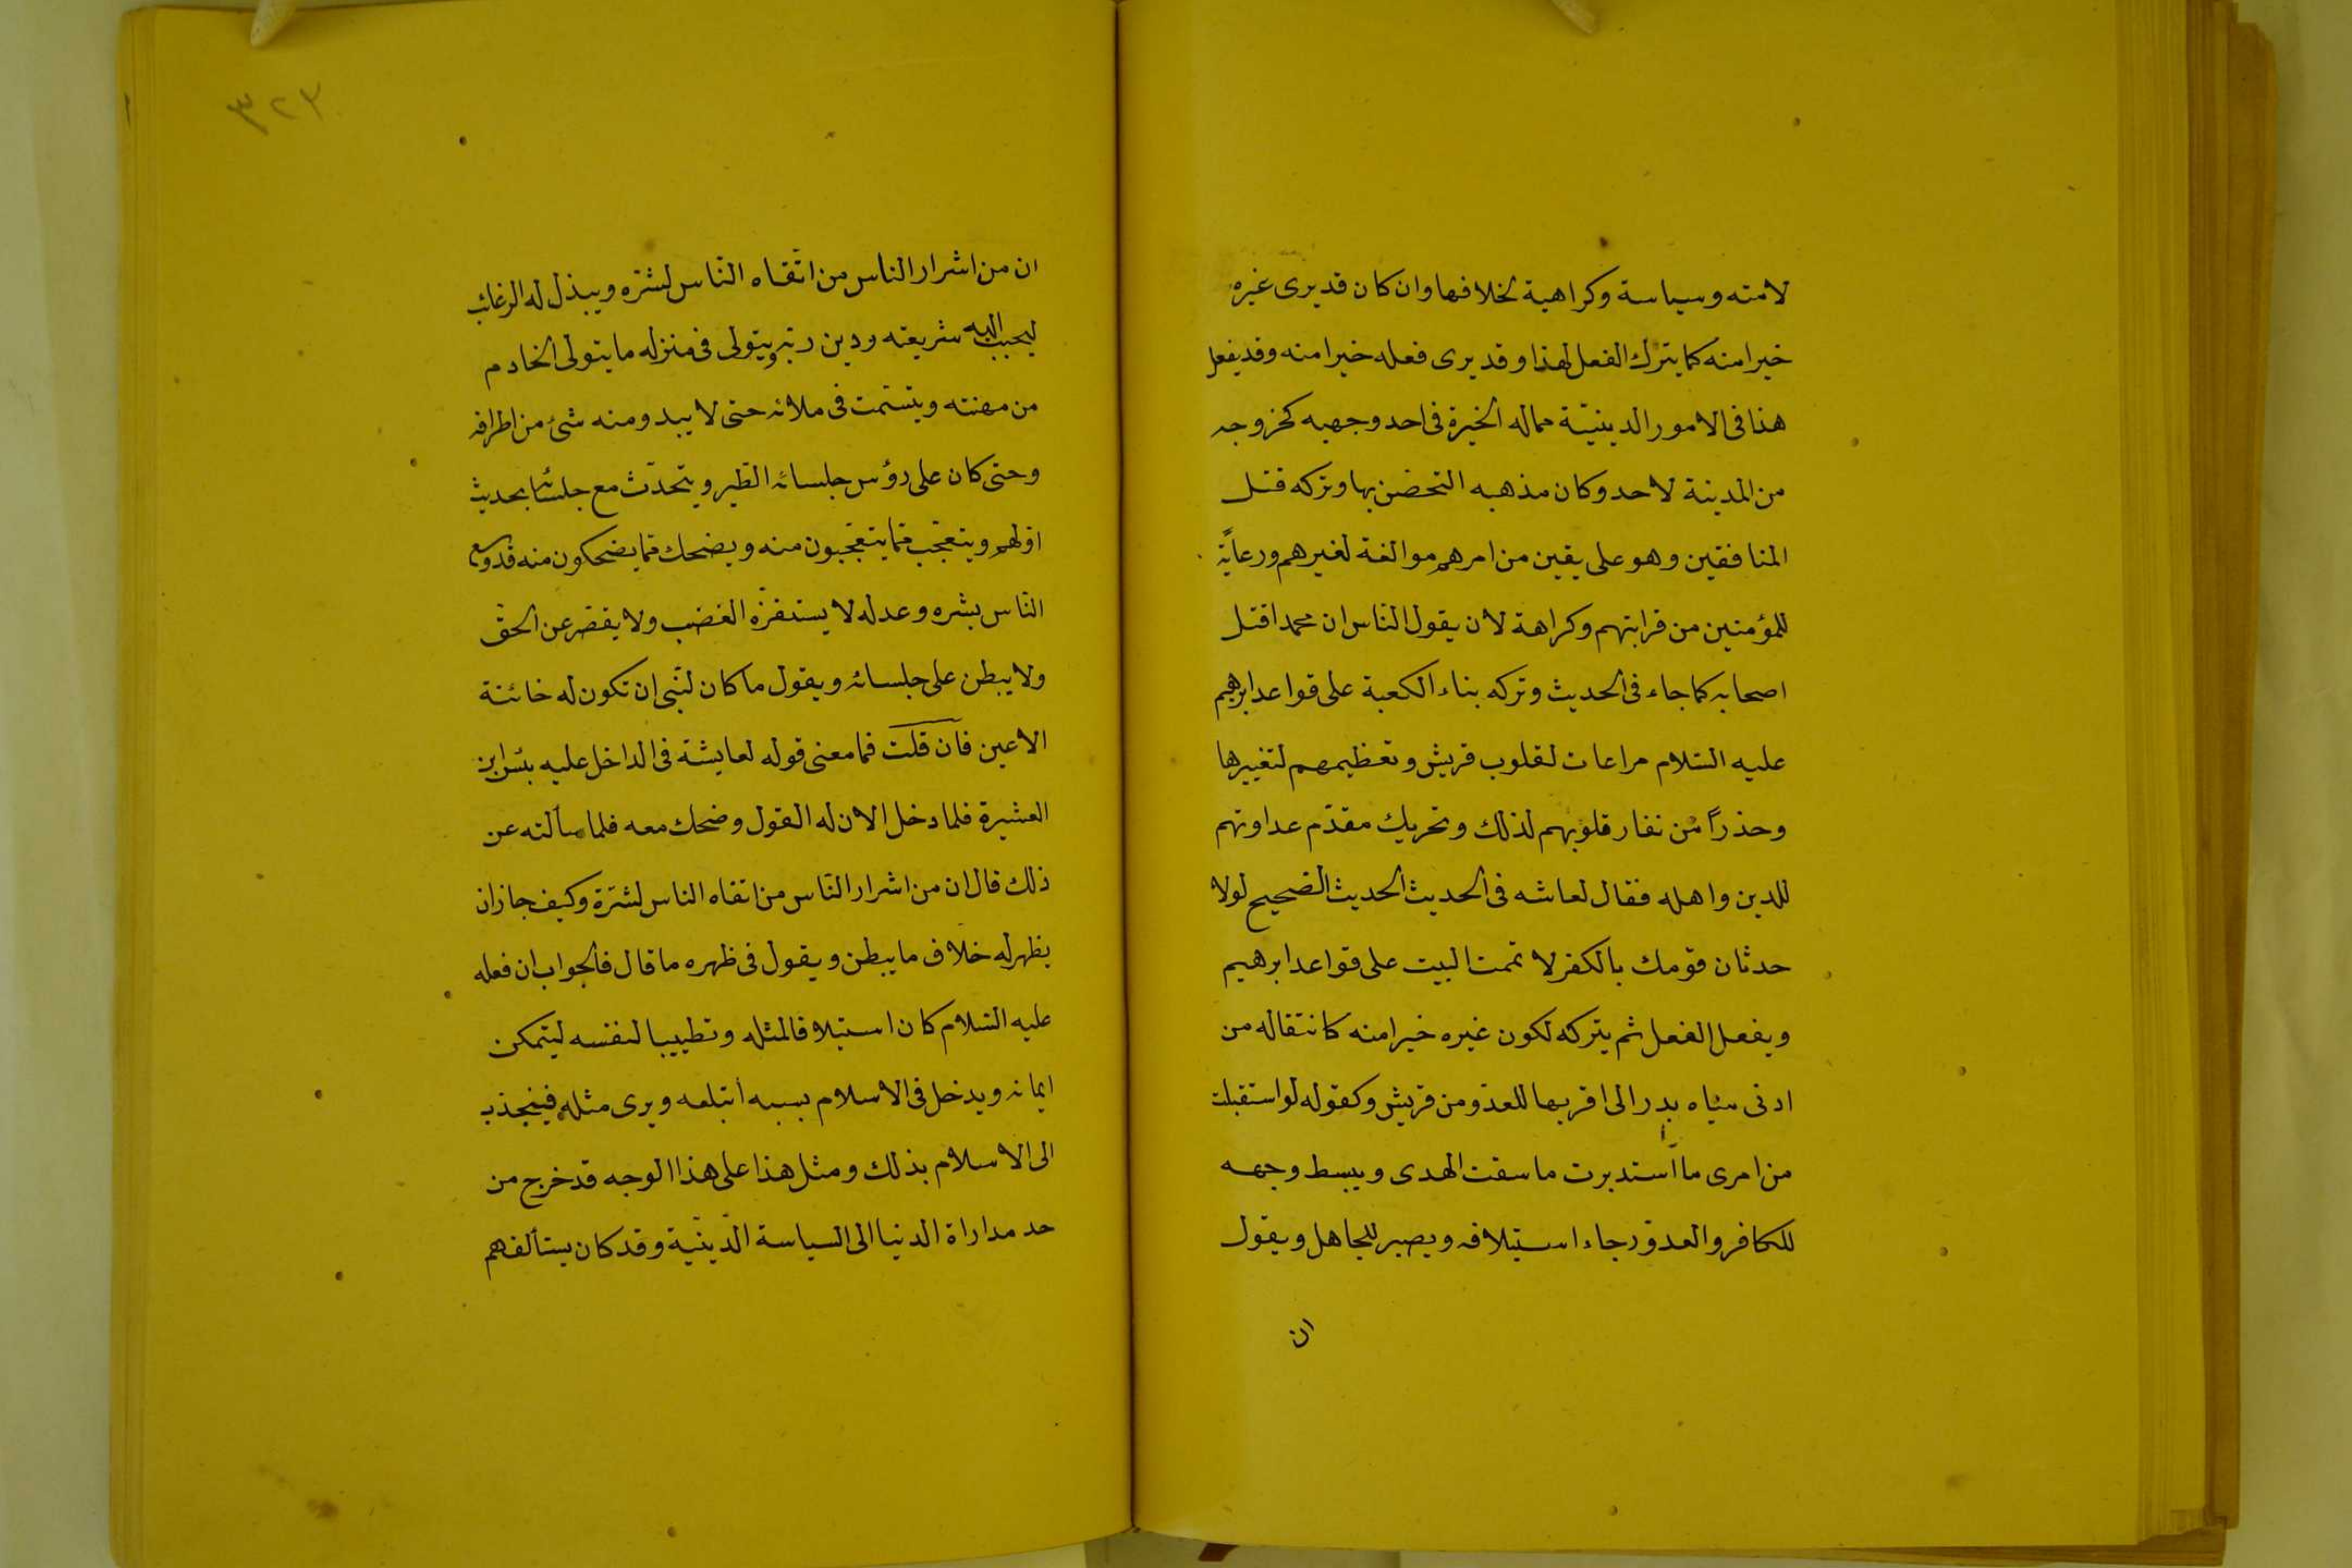 لامته وسياسة وكراهية لخلافها وان كان قد يرى غيره
خيرا منه كما يترك الفعل لهذا وقد يرى فعله خيرا منه وقد يفعل
هذا فى الامور الدينيّة مماله الخيرة فى احد وجهيه كخروجه
من المدينة لاحد وكان مذهبه التحضن بها وتركه قتل
المنافقين وهو على يقين من امرهم موالفة لغيرهم ورعايةً
للمؤمنين من قرابتهم وكراهة لان يقول النّاس ان محمدا قتل
اصحابه كما جاء فى الحديث وتركه بناء الكعبة على قواعد ابرهيم
عليه السّلام مراعات لقلوب قريش وتعظيمهم لتغييرها
وحذراً من نفار قلوبهم لذلك وتحريك مقدّم عداوتهم
للدين واهله فقال لعاشه فى الحديث الحديث الصّحيح لولا
حدثان قومك بالكفر لاتممت البيت على قواعد ابرهيم
ويفعل الفعل ثم يتركه لكون غيره خيرا منه كانتقاله من
ادنى مياه بدر الى اقربها للعدّو من قريش وكقوله لو استقبلت
من امرى ما استدبرت ما سقت الهدى ويبسط وجهه
للكافر والعدوّ رجاء استيلافه ويصبر للجاهل ويقول
ان
٣٢٣
ان من اشرار الناس من اتّقاه النّاس لشرّه ويبذل له الرغائب
ليحبب اليه شريعته ودين ربّه ويتولى فى منزله ما يتولى الخادم
من مهنته ويتسمت فى ملائه حتى لا يبدو منه شئ من اطرافه
وحتى كان على رؤس جلسائه الطّير ويتحدّث مع جلسائه بحديث
اوّلهم ويتعجّب ممّا يتعجّبون منه ويضحك ممّا يضحكون منه قد وسع
النّاس بشره وعدله لا يستفزّه الغضب ولا يقصّر عن الحقّ
ولا يبطن على جلسائه ويقول ما كان لنّبى ان تكون له خائنة
الاعين فان قلت فما معنى قوله لعايشة فى الداخل عليه بئس ابن
العشيرة فلما دخل الان له القول وضحك معه فلما سألته عن
ذلك قال ان من اشرار النّاس من اتقاه الناس لشرّه وكيف جاز ان
يظهر له خلاف ما يبطن ويقول فى ظهره ما قال فالجواب ان فعله
عليه السّلام كان استيلافا لمثله وتطييبا لنفسه ليتمكن
ايمانه ويدخل فى الاسلام بسببه أتباعه ويرى مثله فينجذب
الى الاسلام بذلك ومثل هذا على هذا الوجه قد خرج من
حد مداراة الدنيا الى السياسة الدّينّية وقد كان يستألفهم